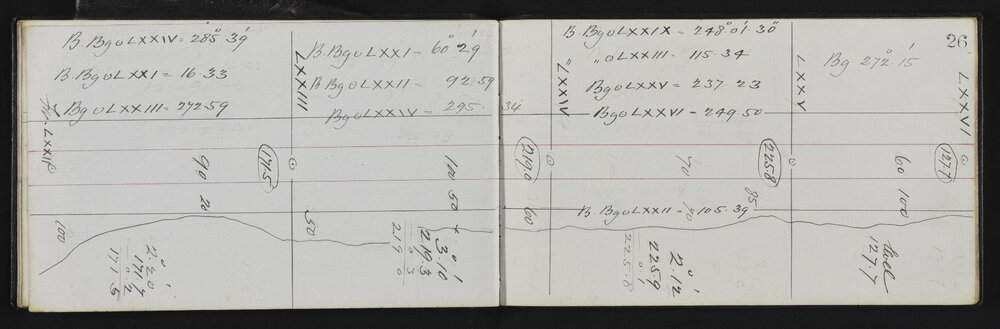 B. Bg o LXXIV = 285° 39'
B. Bg o LXXI = 16.33
Bg o LXXIII = 272.59
LXXII
90
20
100
1715
2° 20'
171.7
0.2
171.5
LXXIII
B. Bg o LXXI = 60° 29'
B Bg o LXXII = 92.59
Bg o LXXIV = 295.34
100 50
50
3° 10'
219.3
0.3
219.0
2190
60
B. Bg o LXXIX = 248° 01' 30"
" o LXXIII = 115.34
Bg o LXXV = 237 23
Bg o LXXVI = 249.50
LXXIV
70
90
B. Bg o LXXII = 105.39
85
2258
2° 12'
225.9
0.1
225.8
26
LXXV
Bg 272° 15'
LXXVI
60 100
1277
level
127.7